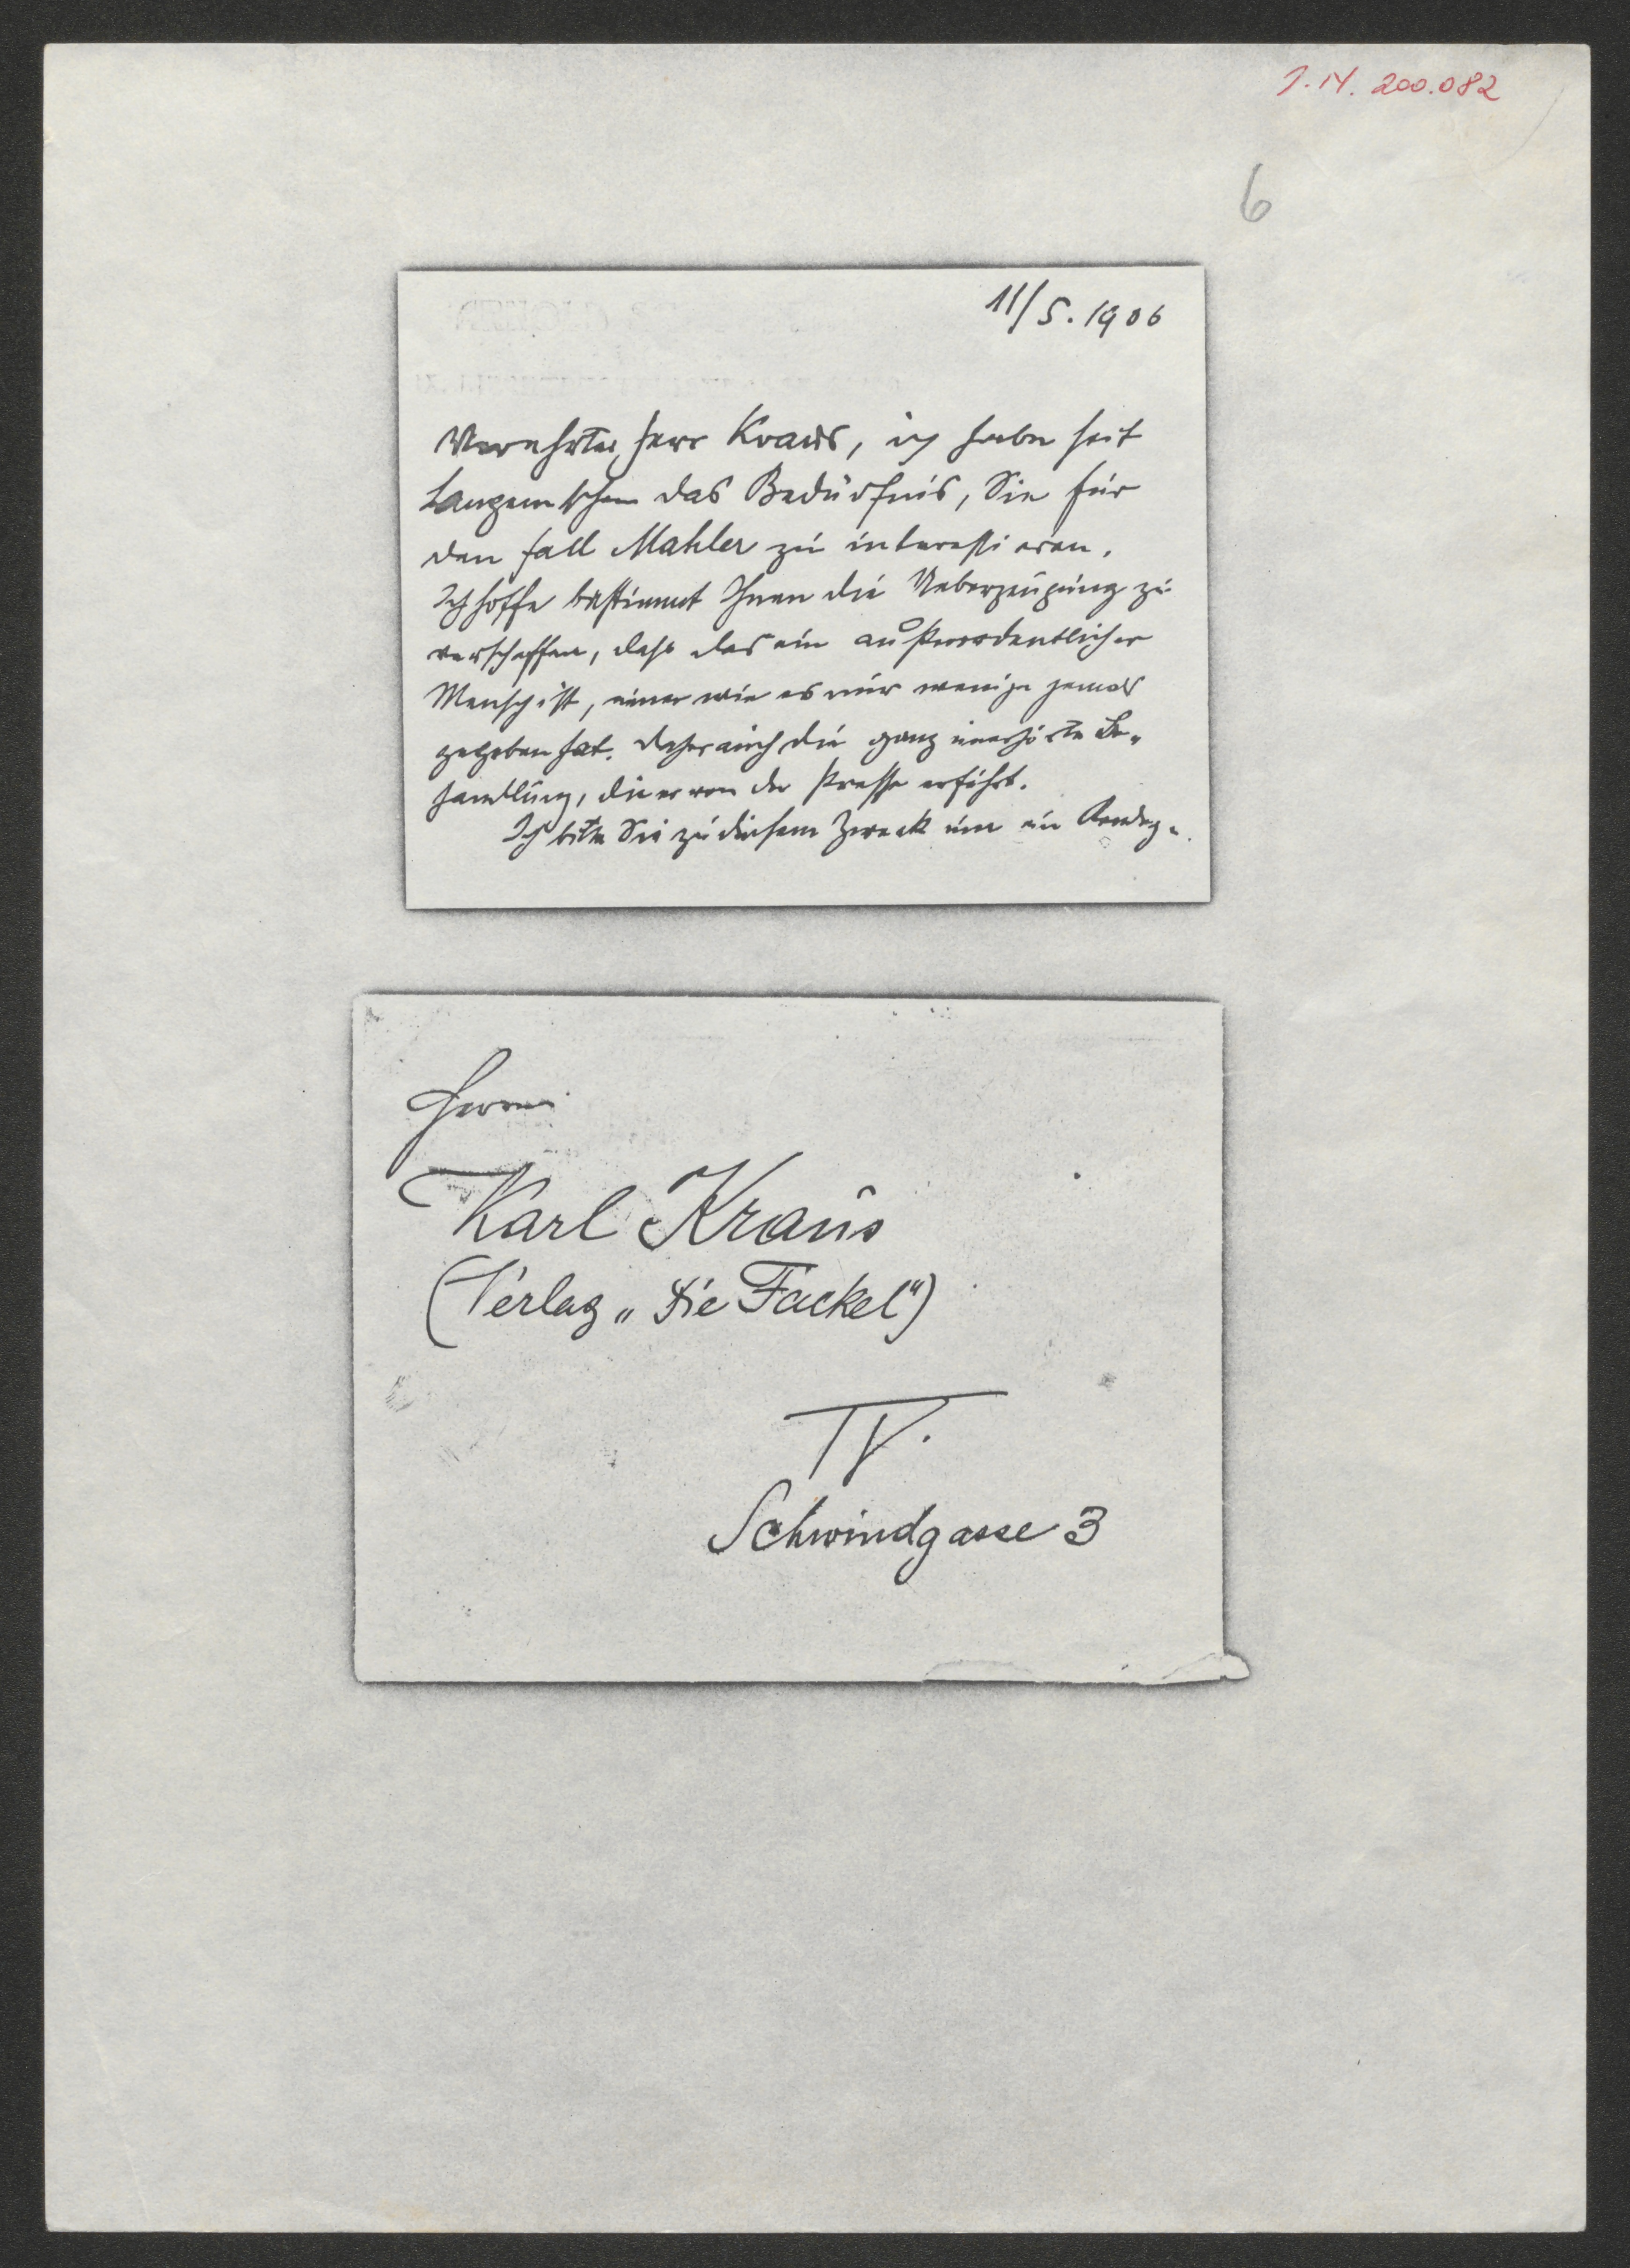 J.N. 200.082
6
11/5. 1906
Verehrter Herr Kraus, ich habe seit
Langem schon das Bedürfnis, Sie für
den Fall Mahler zu interessieren.
Ich hoffe bestimmt Ihnen die Ueberzeugung zu
verschaffen, dass das ein außerordentlicher
Mensch ist, einer wie es nur wenige jemals
gegeben hat. Daher auch die ganz unerhörte Be„
handlung, die er von der Presse erfährt.
Ich bitte Sie zu diesem Zweck um ein Rendez„
Herrn
Karl Kraus
(Verlag „Die Fackel“)
IV.
Schwindgasse 3